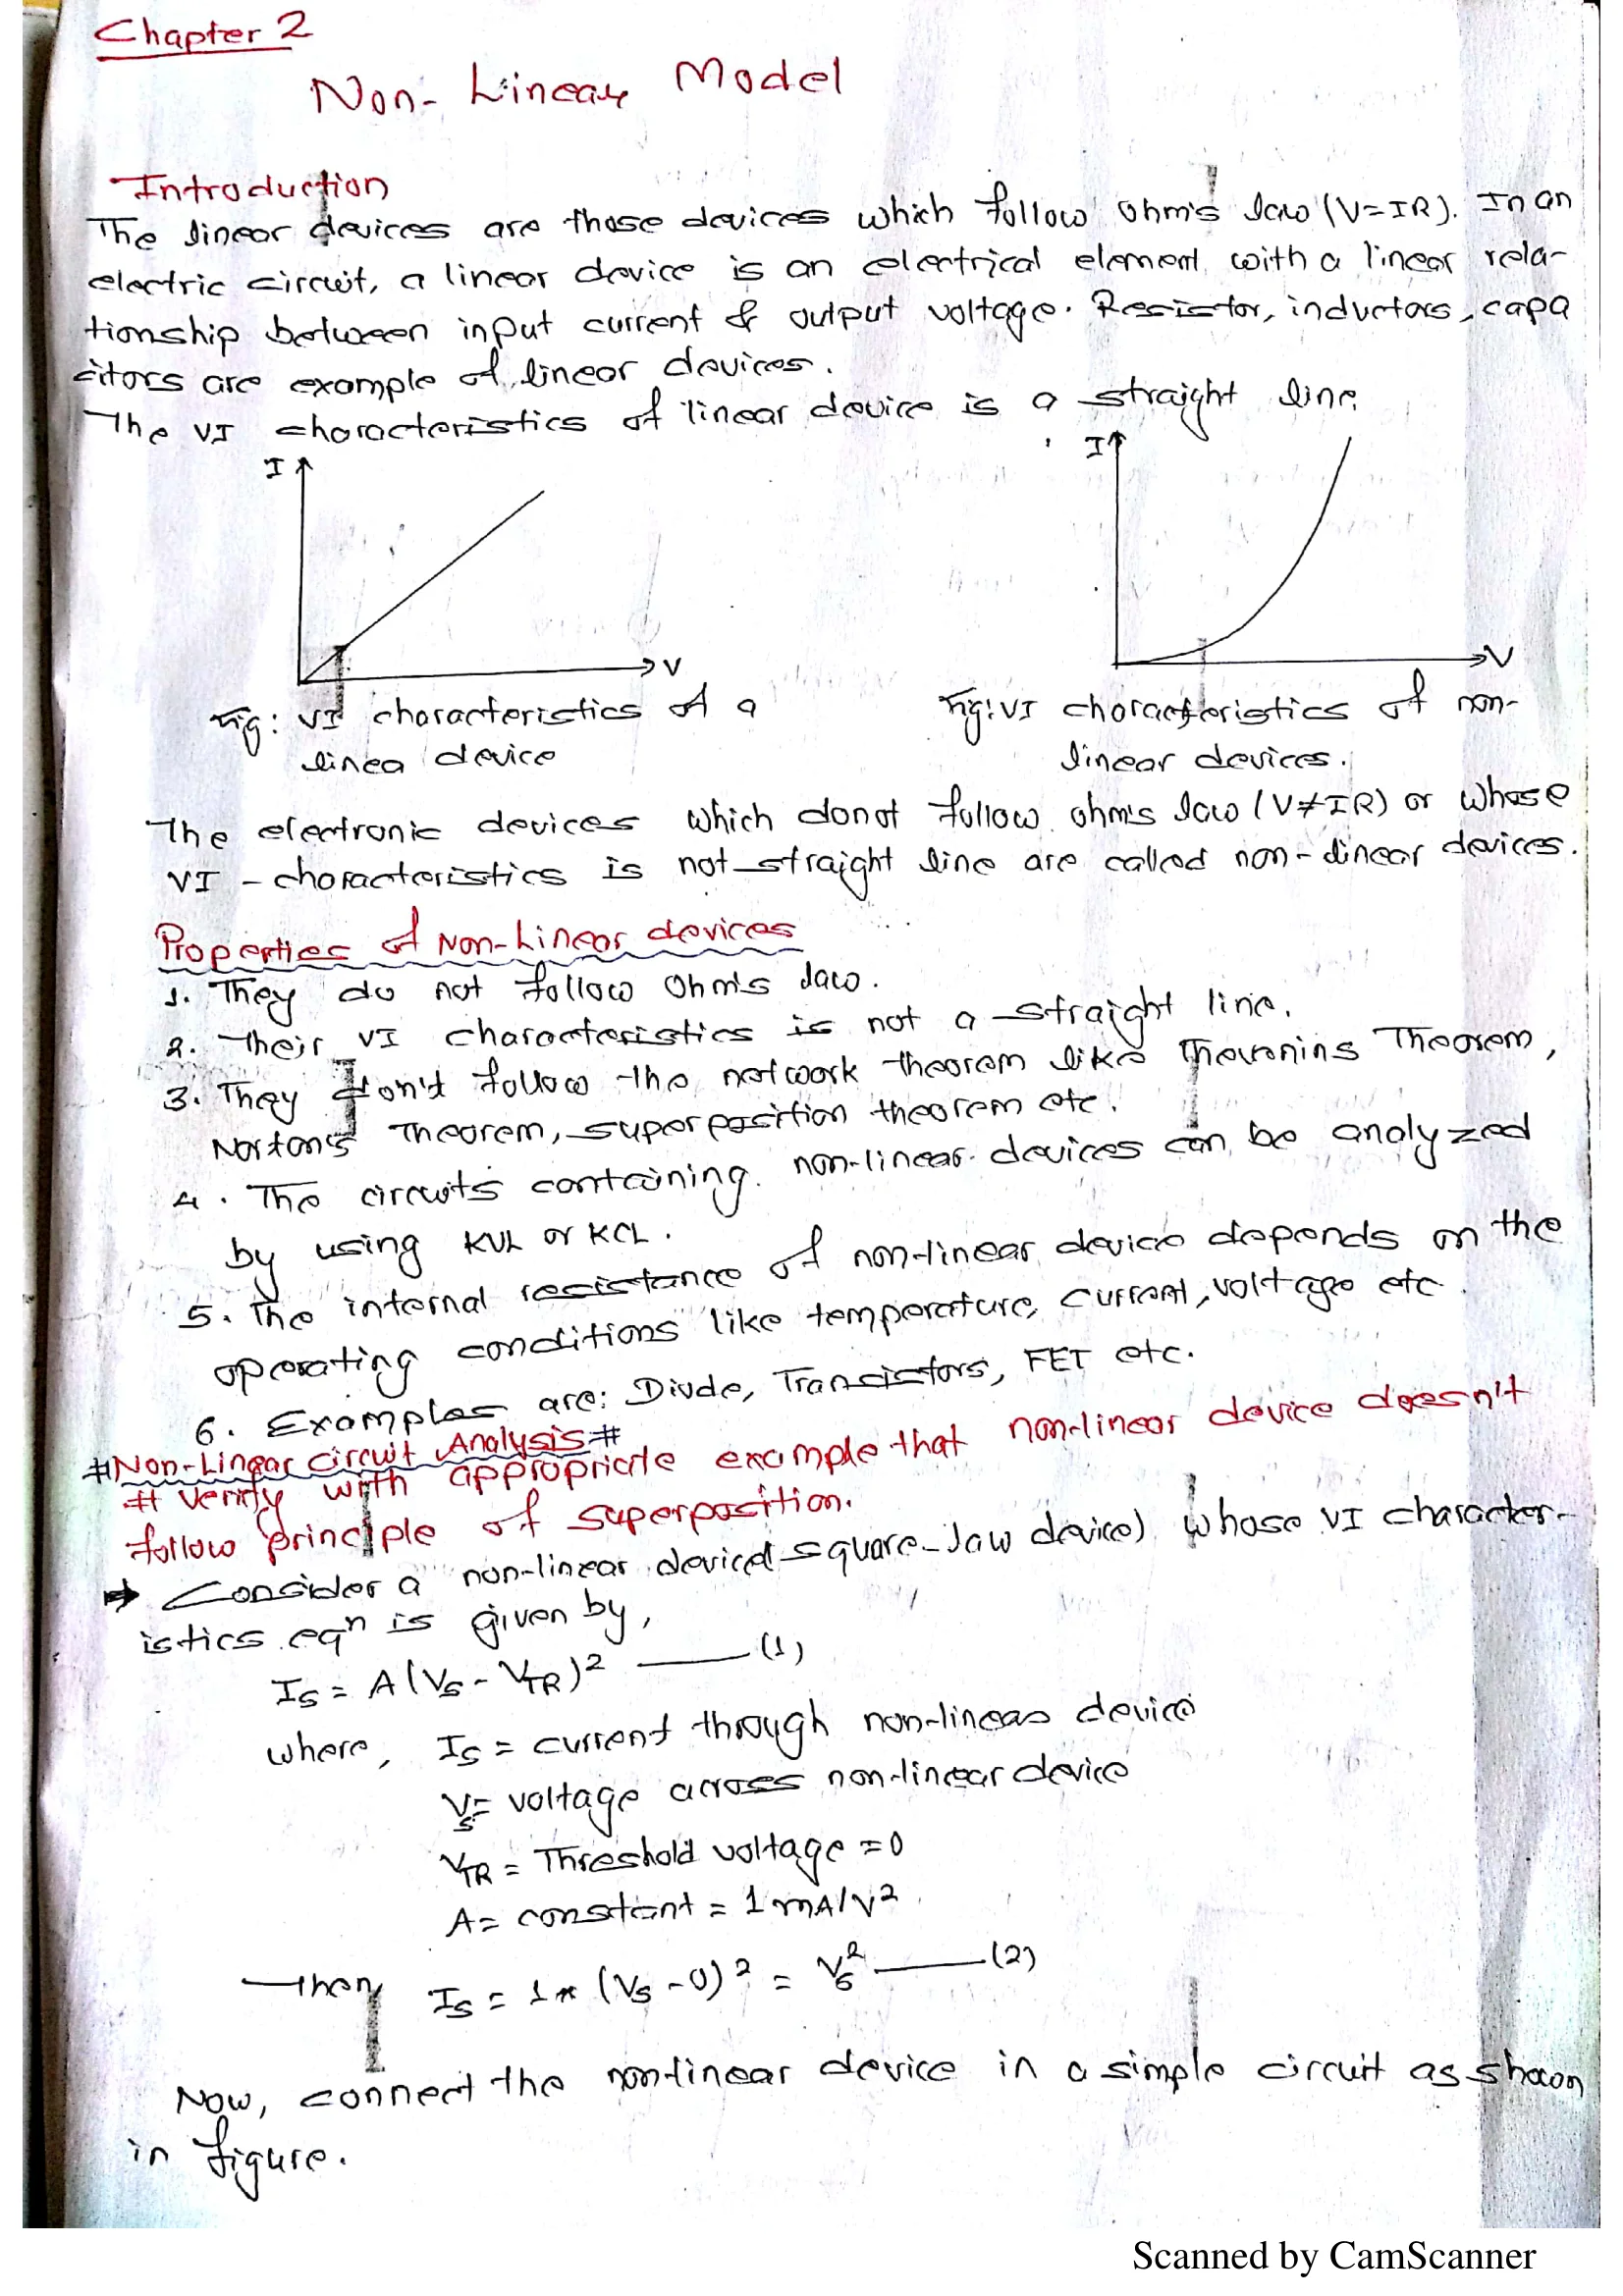 Chapter 2
Non-Linear Model
Introduction
The linear devices are those devices which follow ohm's law (V=IR). In an
electric circuit, a linear device is an electrical element with a linear rela-
tionship between input current & output voltage. Resistor, inductors, capa
citors are example of linear devices.
The VI characteristics of linear device is a straight line.
I
V
I
V
Fig: VI characteristics of a
linea device
Fig: VI characteristics of non-
linear devices.
The electronic devices which donot follow ohm's law (V≠IR) or whose
VI - characteristics is not straight line are called non-linear devices.
Properties of Non-Linear devices
1. They do not follow Ohm's law.
2. Their VI characteristics is not a straight line.
3. They don't follow the network theorem like Thevenins Theorem,
Norton's Theorem, superposition theorem etc.
4. The circuits containing non-linear devices can be analyzed
by using KVL or KCL.
5. The internal resistance of non-linear device depends on the
operating conditions like temperature, current, voltage etc.
6. Examples are: Diode, Transistors, FET etc.
#Non-Linear circuit Analysis#
# Verify with appropriate example that non-linear device doesn't
follow principle of superposition.
→ Consider a non-linear device(square-law device) whose VI character-
istics eqⁿ is given by,
I_S = A(V_S - V_TR)² —— (1)
where, I_S = current through non-linear device
V_S = voltage across non-linear device
V_TR = Threshold voltage = 0
A = constant = 1 mA/V²
Then, I_S = 1 × (V_S - 0)² = V_S² —— (2)
Now, connect the non-linear device in a simple circuit as shown
in figure.
Scanned by CamScanner